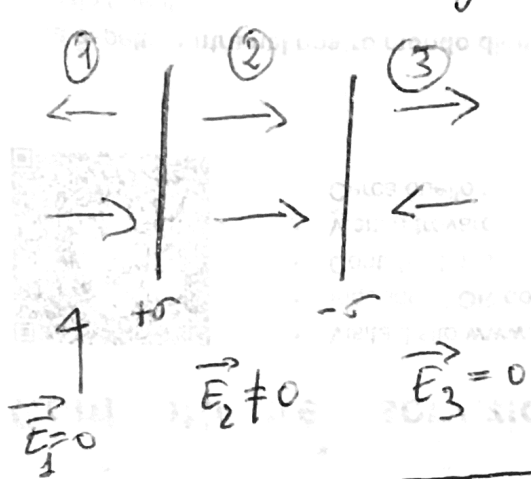 ① ② ③
+σ -σ
E⃗₁=0 E⃗₂≠0 E⃗₃=0